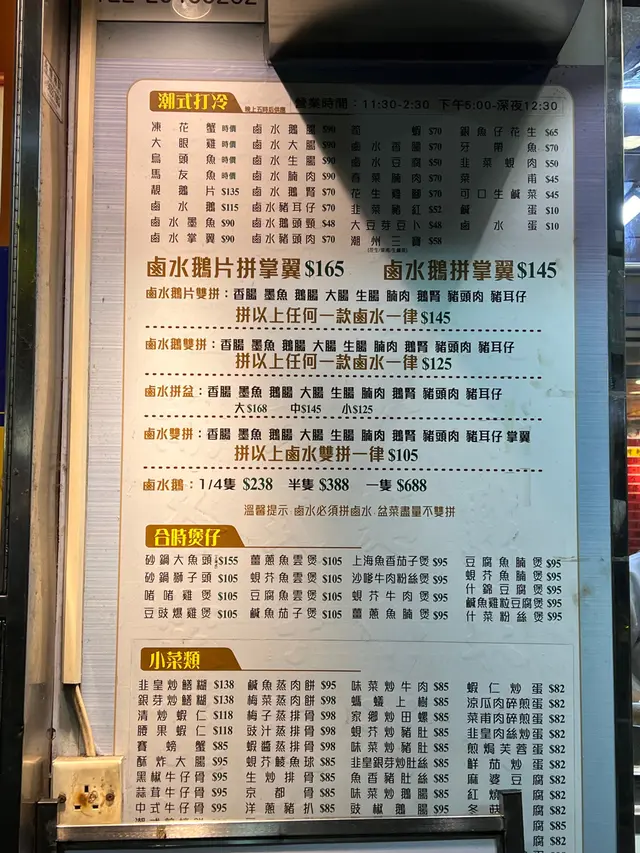 潮式打冷 晚上五時后供應 營業時間：11:30-2:30 下午6:00-深夜12:30
凍花蟹 時價
大眼雞 時價
烏頭魚 時價
馬友魚 時價
靚鵝片 $135
鹵水鵝 $115
鹵水墨魚 $90
鹵水掌翼 $90
鹵水鵝腸 $90
鹵水大腸 $90
鹵水生腸 $90
鹵水腩肉 $90
鹵水鵝腎 $70
鹵水豬耳仔 $70
鹵水鵝頭頸 $48
鹵水豬頭肉 $70
蝦 $70
鹵水香腸 $70
鹵水豆腐 $50
春菜腩肉 $70
花生雞腳 $70
韭菜豬紅 $52
大豆芽豆卜 $48
潮州三寶 $58
銀魚仔花生 $65
牙帶魚 $70
韭菜蜆肉 $50
菜甫 $45
可口生鹹菜 $45
鹹蛋 $10
鹵水蛋 $10
鹵水鵝片拼掌翼 $165 鹵水鵝拼掌翼 $145
鹵水鵝片雙拼：香腸 墨魚 鵝腸 大腸 生腸 腩肉 鵝腎 豬頭肉 豬耳仔
拼以上任何一款鹵水一律 $145
鹵水鵝雙拼：香腸 墨魚 鵝腸 大腸 生腸 腩肉 鵝腎 豬頭肉 豬耳仔
拼以上任何一款鹵水一律 $125
鹵水拼盆：香腸 墨魚 鵝腸 大腸 生腸 腩肉 鵝腎 豬頭肉 豬耳仔
大$168 中$145 小$125
鹵水雙拼：香腸 墨魚 鵝腸 大腸 生腸 腩肉 鵝腎 豬頭肉 豬耳仔 掌翼
拼以上鹵水雙拼一律 $105
鹵水鵝：1/4隻 $238 半隻 $388 一隻 $688
溫馨提示:鹵水必須拼鹵水,盆菜盡量不雙拼
合時煲仔
砂鍋大魚頭 $155
砂鍋獅子頭 $105
啫啫雞煲 $105
豆豉爆雞煲 $105
薑蔥魚雲煲 $105
蜆芥魚雲煲 $105
豆腐魚雲煲 $105
鹹魚茄子煲 $95
上海魚香茄子煲 $95
沙嗲牛肉粉絲煲 $95
蜆芥牛肉煲 $95
薑蔥魚腩煲 $95
豆腐魚腩煲 $95
蜆芥魚腩煲 $95
什錦豆腐煲 $95
鹹魚雞粒豆腐煲 $95
什菜粉絲煲 $95
小菜類
韭皇炒鱔糊 $138
銀芽炒鱔糊 $138
清炒蝦仁 $118
腰果蝦仁 $118
賽螃蟹 $85
酥炸大腸 $95
黑椒牛仔骨 $95
蒜茸牛仔骨 $95
中式牛仔骨 $95
鹹魚蒸肉餅 $95
梅菜蒸肉餅 $98
梅子蒸排骨 $98
豉汁蒸排骨 $98
蝦醬蒸排骨 $98
蜆芥鯪魚球 $85
生炒排骨 $85
京都骨 $85
洋蔥豬扒 $85
味菜炒牛肉 $85
螞蟻上樹 $85
家鄉炒田螺 $85
蜆芥炒豬肚 $85
味菜炒豬肚 $85
韭皇銀芽炒肚絲 $85
魚香豬肚絲 $85
味菜炒鵝腸 $85
豉椒鵝腸 $95
蝦仁炒蛋 $82
涼瓜肉碎煎蛋 $82
菜甫肉碎煎蛋 $82
韭皇肉絲炒蛋 $82
煎焗芙蓉蛋 $82
鮮茄炒蛋 $82
麻婆豆腐 $82
紅燒 腐 $82
冬菇 腐 $82
腐 $85
腐 $82